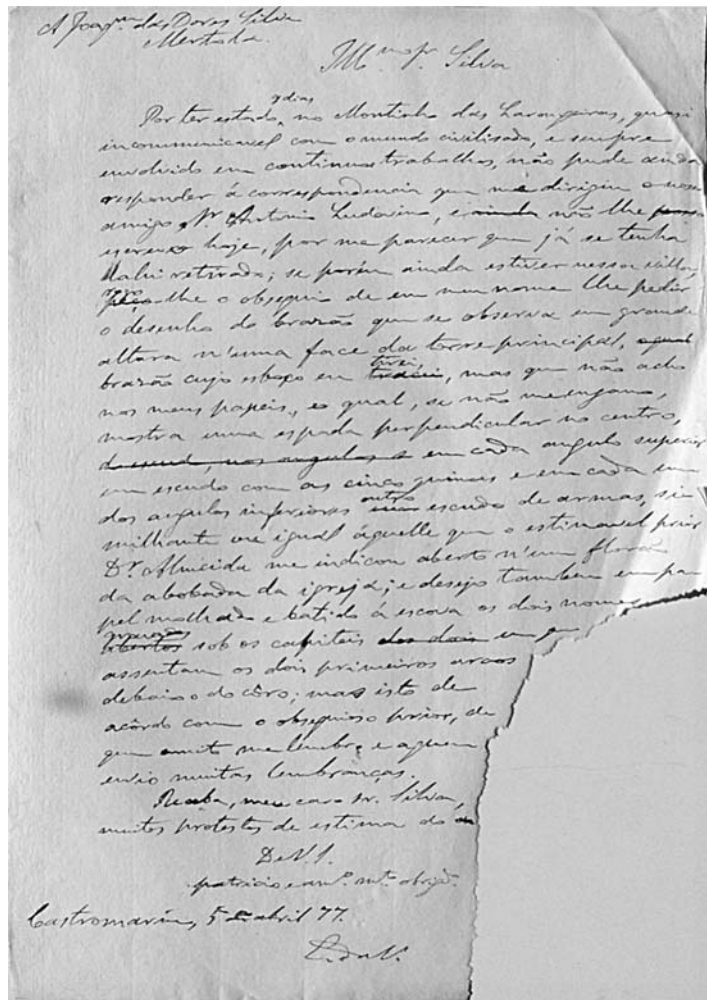 A Joaqm. das Dores Silva
Mertola.
Illmo Sr. Silva
9 dias
Por ter estado, no Montinho das Larangeiras, quasi
incommunicavel com o mundo civilisado, e sempre
envolvido em continuos trabalhos, não pude ainda
responder á correspondencia que me dirigiu o nosso
amigo Sr. Antonio Ludovino, e ainda não lhe posso
escrevo hoje, por me parecer que já se tenha
dahi retirado; se porém ainda estiver nessa villa,
peço-lhe o obsequio de em meu nome lhe pedir
o desenho do brazão que se observa em grande
altura n'uma face da torre principal, o qual
tirei,
brazão cujo esboço eu tracei, mas que não acho
nos meus papeis, e o qual, se não me engano,
mostra uma espada perpendicular no centro,
nos angulos e em cada angulo superior
um escudo com as cinco quinas e em cada um
outro
dos angulos inferiores escudo de armas, si-
milhante ou igual áquelle que o estimavel prior
Dr. Almeida me indicou aberto n'um florão
da abobada da igreja; e desejo tambem em pa
pel molhado e batido á escova os dois nomes
gravados
abertos sob os capiteis dos dois em q
assentam os dois primeiros arcos
debaixo do côro; mas isto de
acôrdo com o obsequioso prior, de
quem muito me lembro e a quem
envio muitas lembranças.
Receba, meu caro sr. Silva,
muitos protestos de estima do
De V. S.
patricio e amo. mto. obrigdo.
Castromarim, 5 de abril 77.
E. da V.